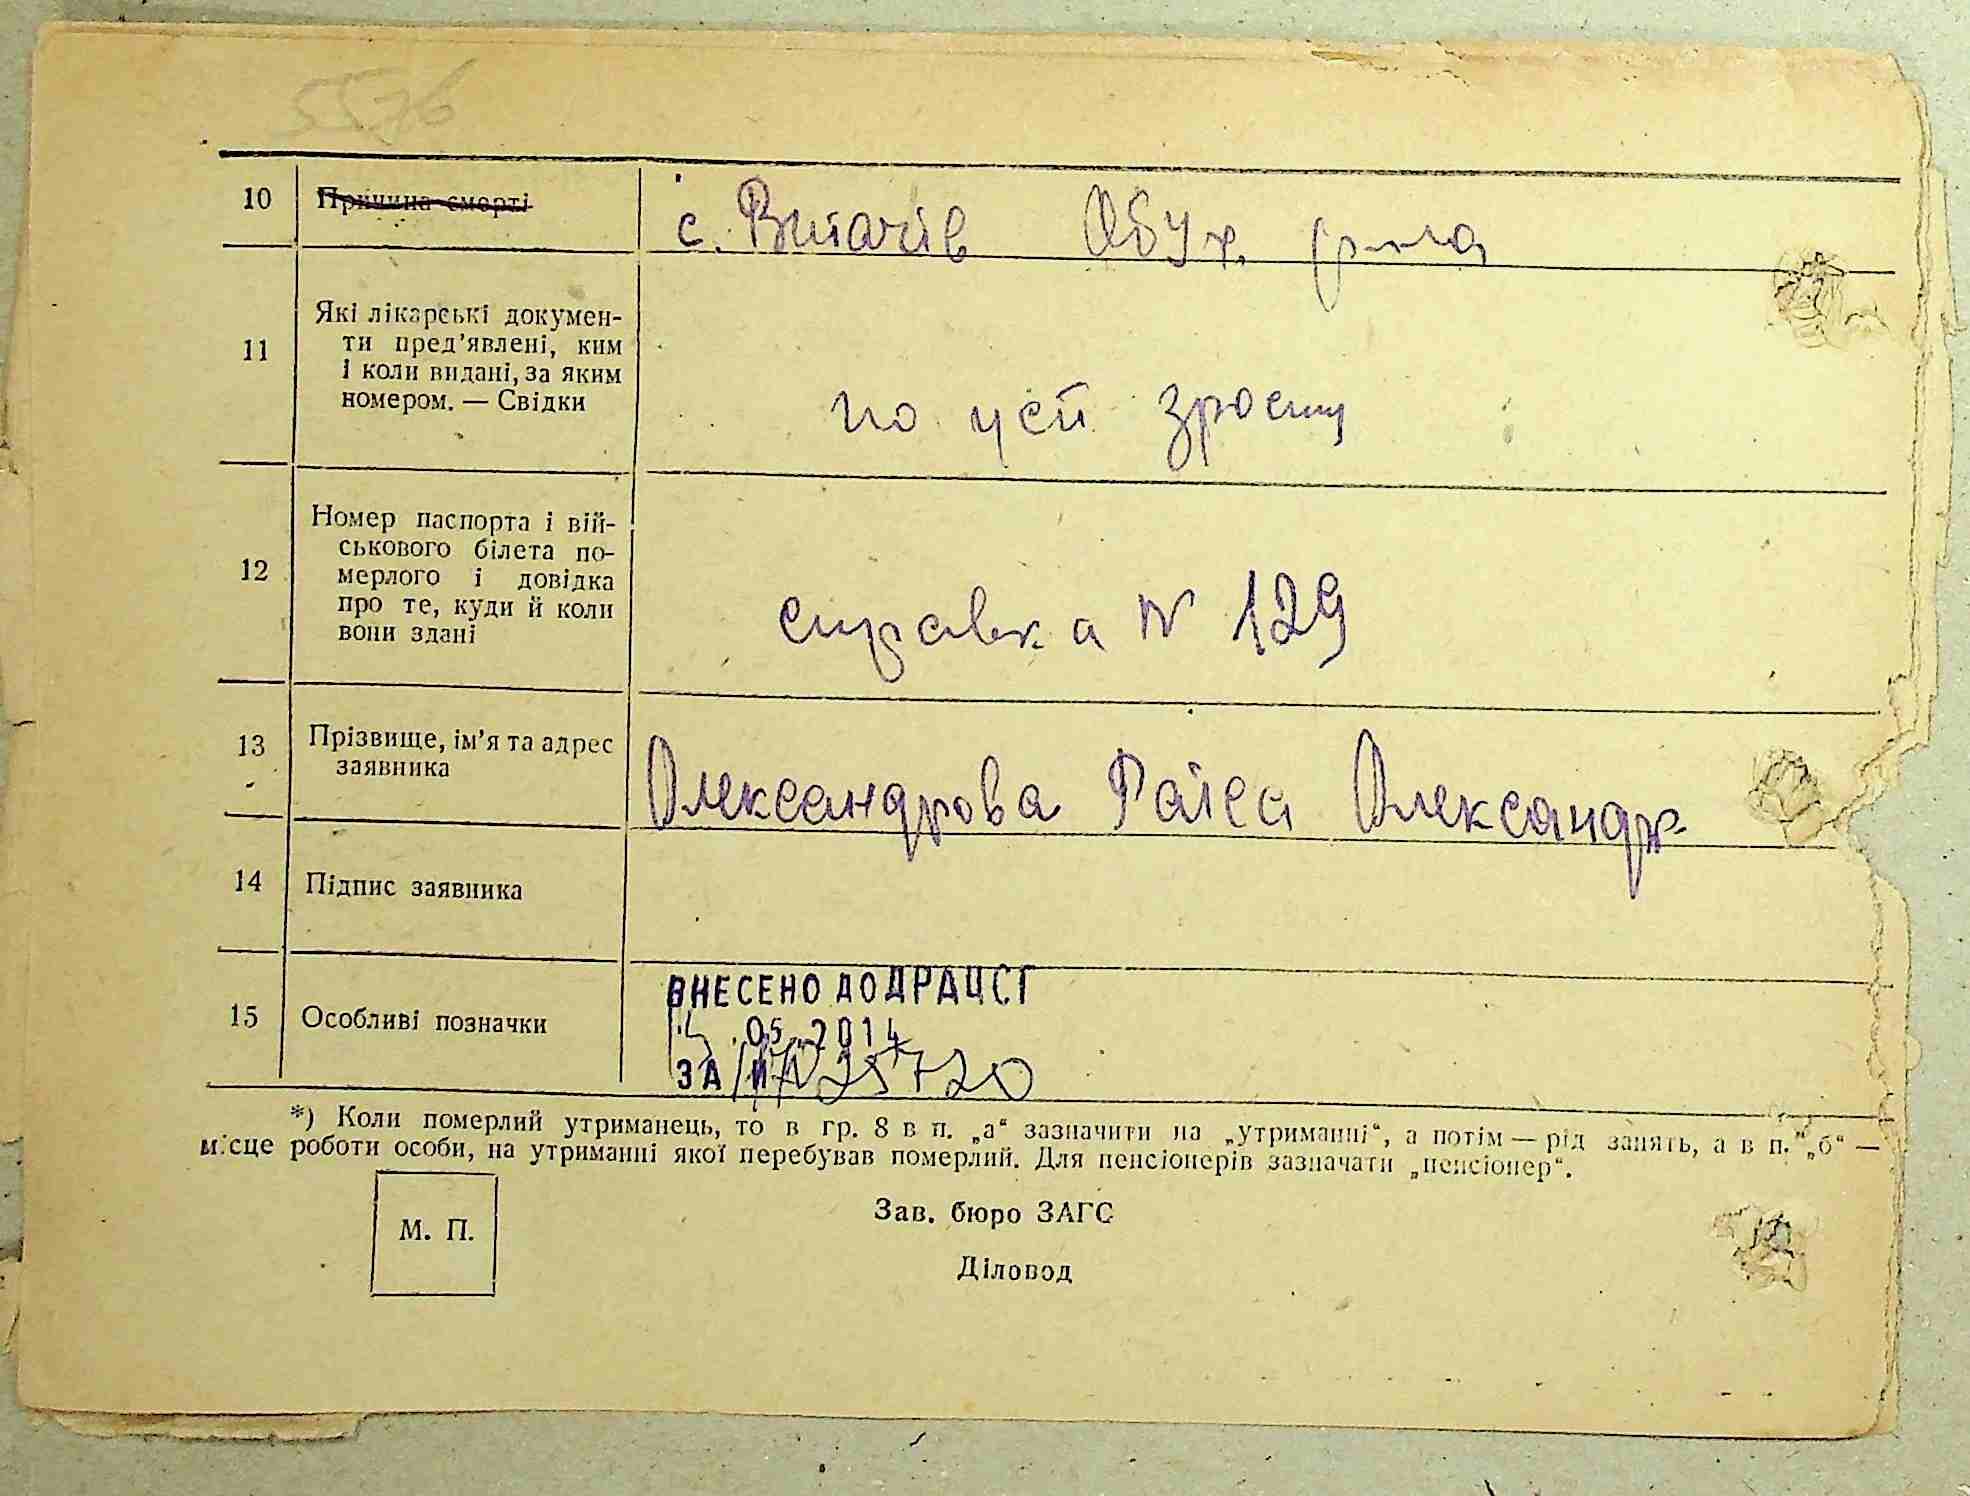 5576
10 Причина смерті с. Витачів Обух. р-на
11 Які лікарські докумен-
ти пред’явлені, ким
і коли видані, за яким
номером. — Свідки
по усп зросту
12 Номер паспорта і вій-
ськового білета по-
мерлого і довідка
про те, куди й коли
вони здані
справка № 129
13 Прізвище, ім’я та адрес
заявника
Олександрова Раїса Олександр
14 Підпис заявника
15 Особливі позначки
ВНЕСЕНО ДО ДРАЦСГ
05.2014
ЗА 25720
*) Коли померлий утриманець, то в гр. 8 в п. „а“ зазначити на „утриманні“, а потім — рід занять, а в п. „б“ —
місце роботи особи, на утриманні якої перебував померлий. Для пенсіонерів зазначати „пенсіонер“.
М. П.
Зав. бюро ЗАГС
Діловод